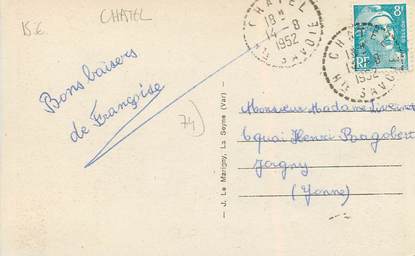 15€
CHATEL
CHATEL
18H
14-8
1952
HTE SAVOIE
8F
RF
CHATEL
1952
HTE SAVOIE
Bons baisers
de Françoise
74)
J. Le Marigny, La Seyne (Var)
Monsieur Madame
quai Henri Ragobert
Joigny
(Yonne)